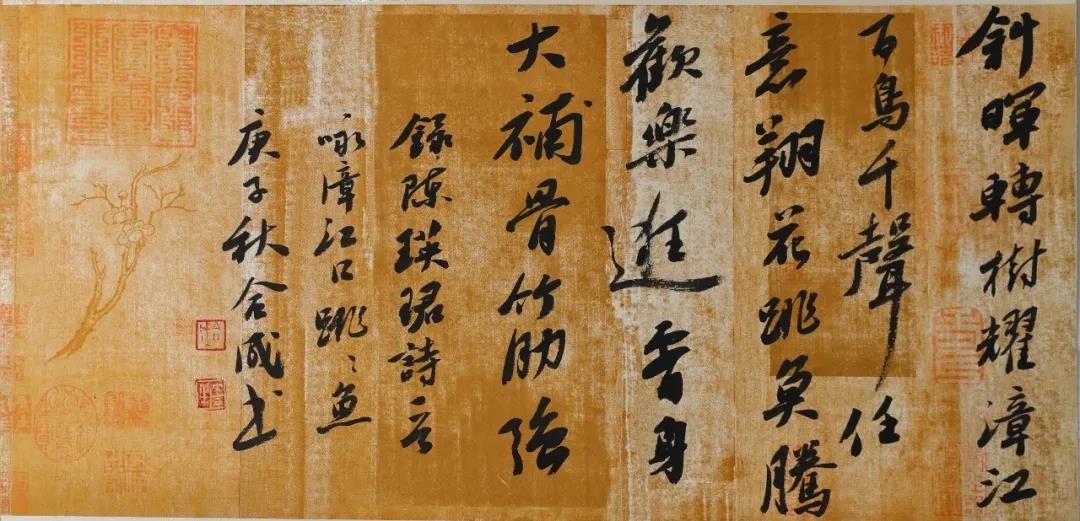 斜暉轉樹耀漳江
百鳥千聲任
意翔花跳魚騰
歡樂逛香身
大補骨筋強
錄陳瑛珺詩
咏漳江口跳〻魚
庚子秋合成书